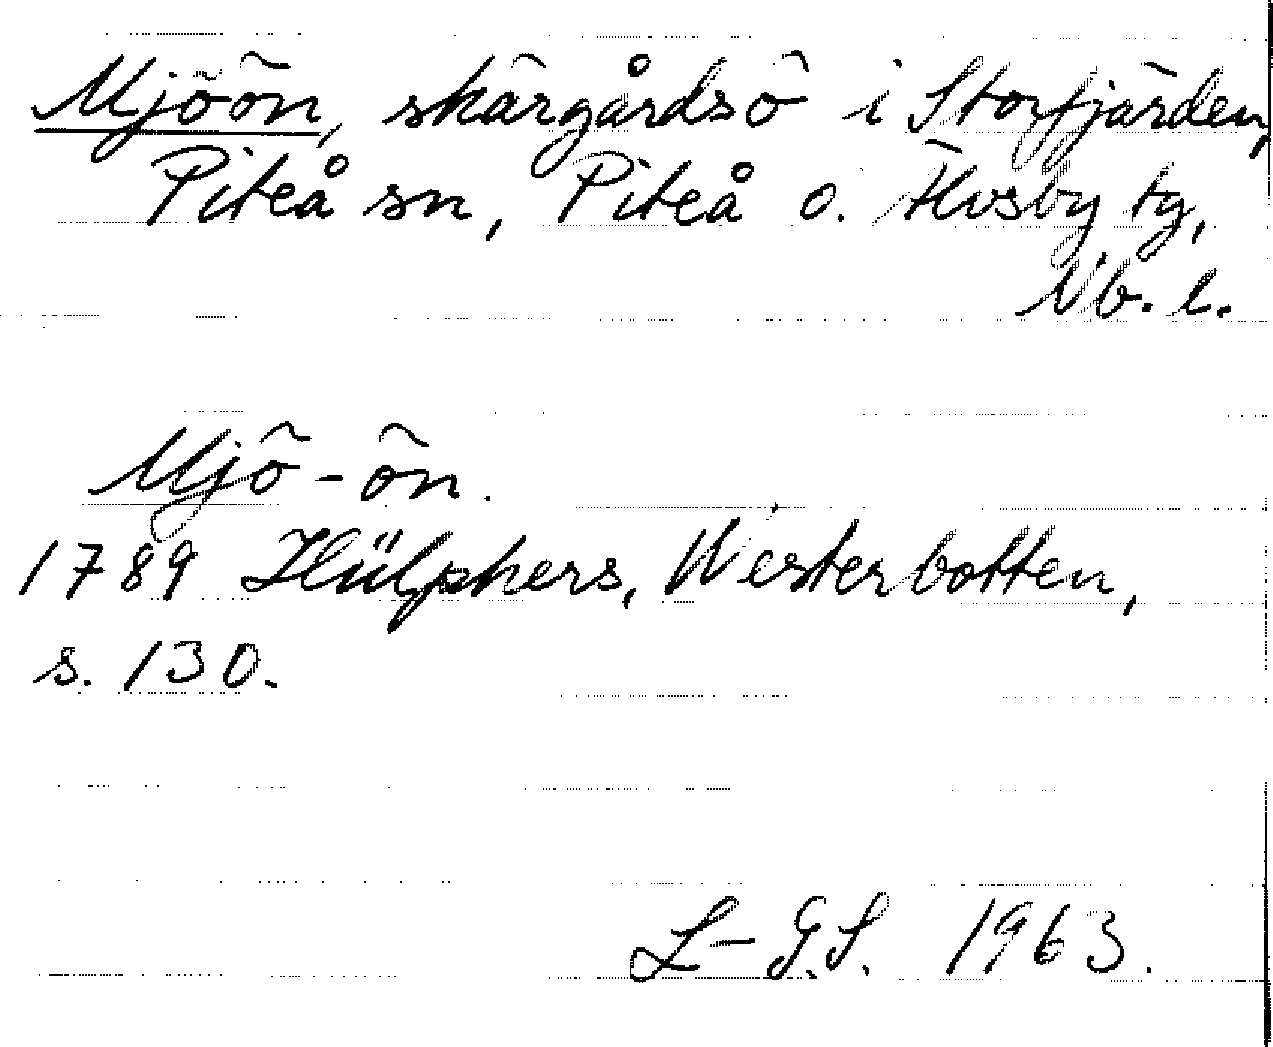 Mjöön, skärgårdsö i Storfjärden,
Piteå sn, Piteå o. Älvsby tg,
Nb. l.
Mjö-ön.
1789 Hülphers, Westerbotten,
s. 130.
L-G.S. 1963.